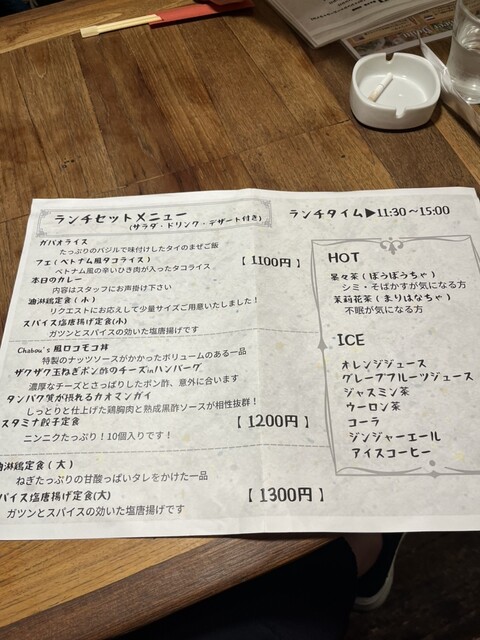 ランチセットメニュー
(サラダ・ドリンク・デザート付き)
ランチタイム▶11:30~15:00
ガパオライス
たっぷりのバジルで味付けしたタイのまぜご飯
フェ(ベトナム風タコライス)
ベトナム風の辛いひき肉が入ったタコライス
【1100円】
本日のカレー
内容はスタッフにお声掛け下さい
油淋鶏定食(小)
リクエストにお応えして少量サイズご用意いたしました!
スパイス塩唐揚げ定食(小)
ガツンとスパイスの効いた塩唐揚げです
Chabou's 風ロコモコ丼
特製のナッツソースがかかったボリュームのある一品
ザクザク玉ねぎポン酢のチーズinハンバーグ
濃厚なチーズとさっぱりしたポン酢、意外に合います
タンパク質が摂れるカオマンガイ
しっとりと仕上げた鶏胸肉と熟成黒酢ソースが相性抜群!
スタミナ餃子定食
【1200円】
ニンニクたっぷり!10個入りです!
油淋鶏定食(大)
ねぎたっぷりの甘酸っぱいタレをかけた一品
パイス塩唐揚げ定食(大)
【1300円】
ガツンとスパイスの効いた塩唐揚げです
HOT
(ぼうぼうちゃ)
シミ・そばかすが気になる方
茉莉花茶(まりはなちゃ)
不眠が気になる方
ICE
オレンジジュース
グレープフルーツジュース
ジャスミン茶
ウーロン茶
コーラ
ジンジャーエール
アイスコーヒー